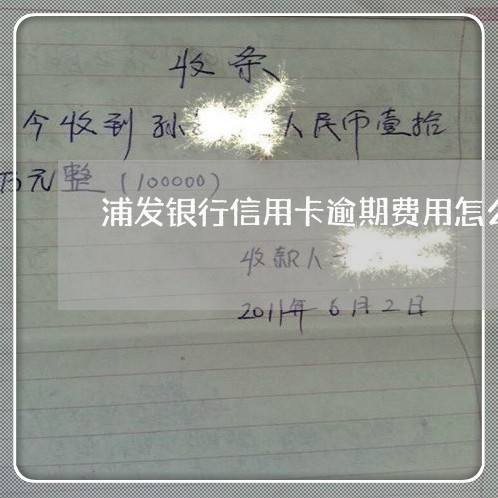 收条
今收到孙 人民币壹拾
万元整（100000）
浦发银行信用卡逾期费用怎么
收款人
2011年6月2日